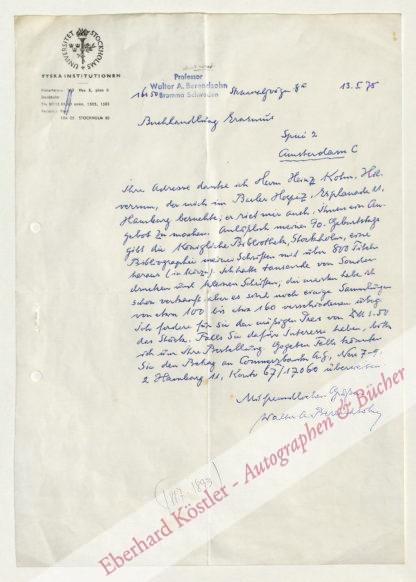 UNIVERSITET STOCKHOLMS
TYSKA INSTITUTIONEN
Professor
Walter A. Berendsohn
Bromma Schweden
13.5.75
Buchhandlung Erasmus
Spui 2
Amsterdam C
Ihre Adresse danke ich Herrn Heinz Kohn, Hil-
versum, der mich im Hospiz, Esplanade
Hamburg besuchte; er riet mir auch, Ihnen ein An-
gebot zu machen. Anlässlich meines 90. Geburtstags
gibt die Königliche Bibliothek, Stockholm, eine
Bibliographie meiner Schriften mit über 800 Titeln
heraus (in Kürze). Ich hatte tausende von Sonder-
drucken und kleinen Schriften, die meisten habe ich
schon verkauft, aber es sind noch einige Sammlungen
von etwa 100 bis etwa 160 verschiedenen übrig.
Ich fordere für sie den mäßigen Preis von DM 1.50
das Stück. Falls Sie dafür Interesse haben, bitte
ich um Ihre Bestellung. Gegeben Falls könnten
Sie den Betrag an Commerzbank AG,
2 Hamburg 11, Konto 67/17060 überweisen
Mit freundlichen Grüßen
Walter A. Berendsohn
Eberhard Köstler - Autographen & Bücher